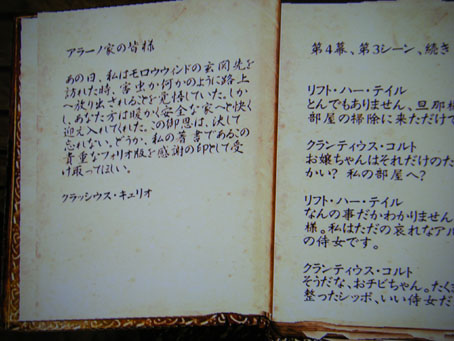 アラーノ家の皆様
あの日、私はモロウウィンドの玄関先
を訪れた時、害虫か何かのように路上
へ放り出されることを覚悟していた。しか
し、あなた方は暖かく安全な家へと快く
迎え入れてくれた。この御恩は、決して
忘れない。どうか、私の著書であるこの
貴重なフォリオ版を感謝の印として受
け取ってほしい。
クラッシウス・キュリオ
第4幕、第3シーン、続き
リフト・ハー・テイル
とんでもありません、旦那様
部屋の掃除に来ただけで
クランティウス・コルト
お嬢ちゃんはそれだけのた
かい? 私の部屋へ?
リフト・ハー・テイル
なんの事だかわかりません
様。私はただの哀れなアル
の侍女です。
クランティウス・コルト
そうだな、おチビちゃん。たく
整ったシッポ、いい侍女だ